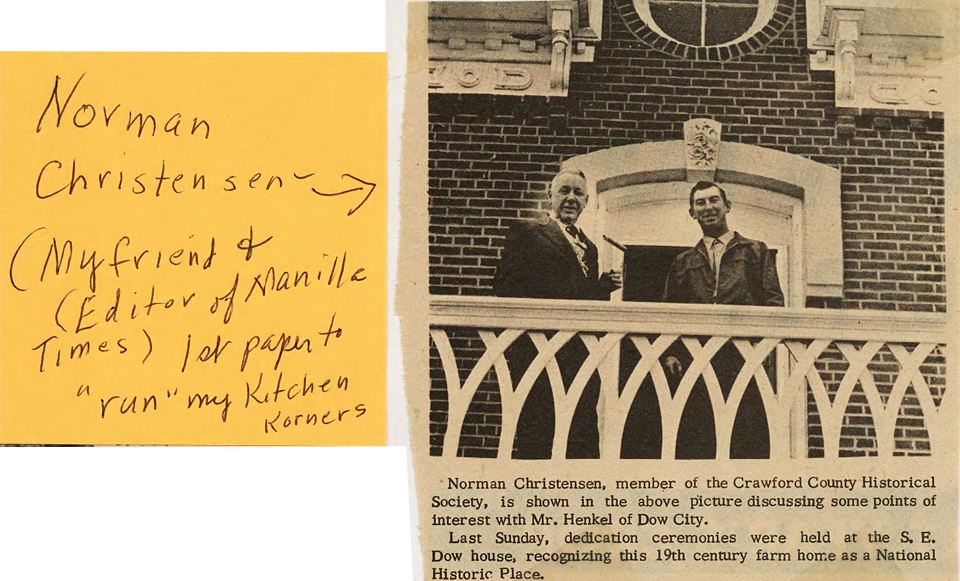 Norman
Christensen
(My friend &
(Editor of Manilla
Times) 1st paper to
"run" my Kitchen
Korners
Norman Christensen, member of the Crawford County Historical
Society, is shown in the above picture discussing some points of
interest with Mr. Henkel of Dow City.
Last Sunday, dedication ceremonies were held at the S. E.
Dow house, recognizing this 19th century farm home as a National
Historic Place.